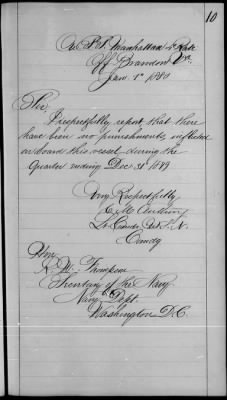 10
U.S.S. Manhattan 4th Rate
Off Brandon Va.
Jan. 1st 1880
Sir
I respectfully report that there
have been no punishments inflicted
on board this vessel during the
Quarter ending Dec 31st 1879.
Very Respectfully
Lt Comdr U.S.N.
Comdg
Hon.
R. W. Thompson
Secretary of the Navy
Navy Dept.
Washington D.C.